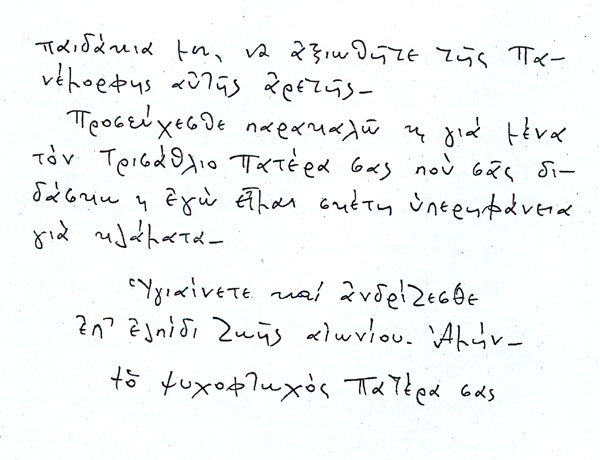 παιδάκια μου, νὰ ἀξιωθῆτε τῆς Πα-
νέμορφης αὐτῆς ἀρετῆς-
Προσεύχεσθε παρακαλῶ κ γιὰ μένα
τὸν Τρισάθλιο Πατέρα σας ποὺ σᾶς δι-
δάσκω κ ἐγὼ εἶμαι σκέτη ὑπερηφάνεια
γιὰ κλάματα-
Ὑγιαίνετε καί ἀνδρίζεσθε
ἐπ' ἐλπίδι Ζωῆς αἰωνίου. Ἀμήν-
ὁ ψυχοφτωχὸς Πατέρα σας